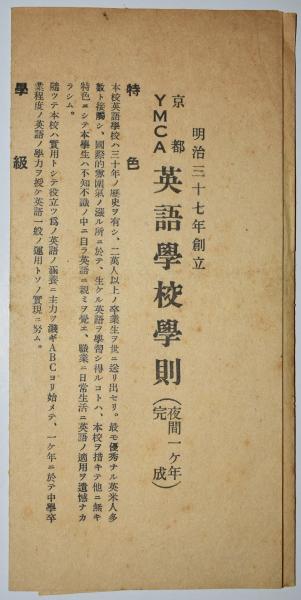 明治三十七年創立
京都
YMCA
英語學校學則
(夜間一ヶ年完成)
特色
本校英語學校ハ三十年ノ歷史ヲ有シ、二萬人以上ノ卒業生ヲ世ニ送リ出セリ。最モ優秀ナル英米人多
數ト接觸シ、國際的雰圍氣ノ漲ル所ニ於テ、生ケル英語ヲ學習シ得ルコトハ、本校ヲ措キテ他ニ無キ
特色ニシテ本學生ハ不知不識ノ中ニ自ラ英語ニ親ミヲ覺エ、職業ニ日常生活ニ英語ノ適用ヲ遺憾ナカ
ラシム。
隨ツテ本校ハ實用トシテ役立ツ爲ノ英語ノ涵養ニ主力ヲ濺ギABCヨリ始メテ、一ケ年ニ於テ中學卒
業程度ノ英語ノ學力ヲ授ケ英語一般ノ運用トソノ實現ニ努ム。
學級